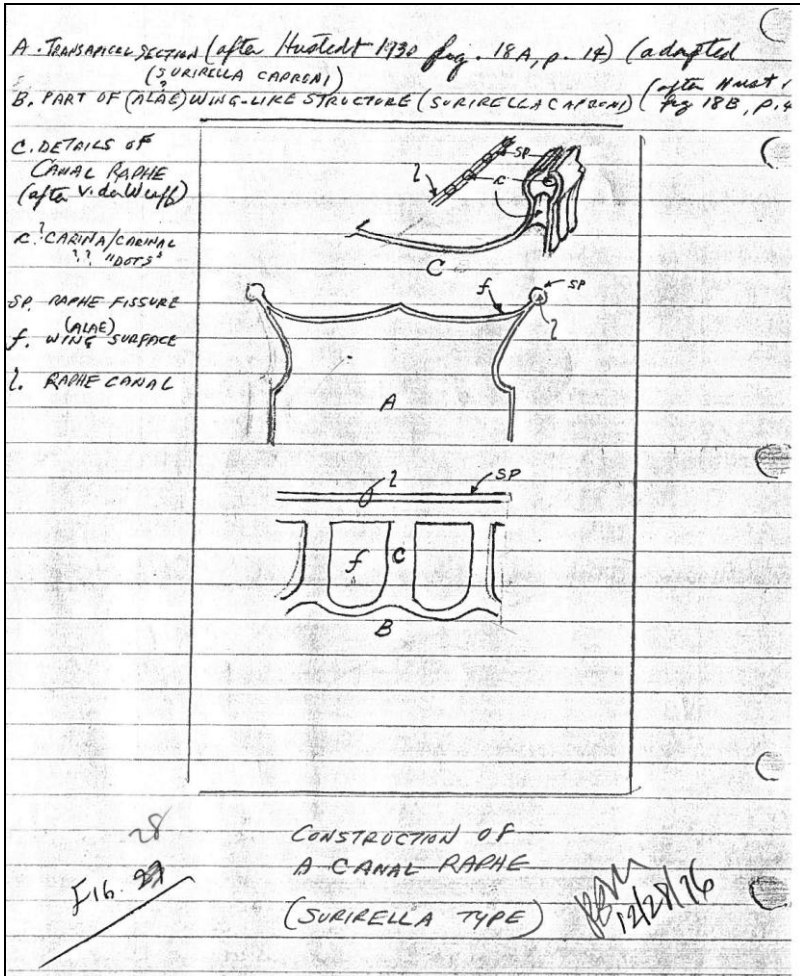 A. TRANSAPICAL SECTION (after Hustedt 1930 fig. 18A, p. 14) (adapted
(SURIRELLA CAPRONI)
B. PART OF (ALAE) WING-LIKE STRUCTURE (SURIRELLA CAPRONI) (after Hust.
fig 18B, p.
C. DETAILS OF
CANAL RAPHE
(after V. der Werff)
C. ? CARINA/CARINAL
? ? "DOTS"
SP. RAPHE FISSURE
(ALAE)
f. WING SURFACE
l. RAPHE CANAL
SP
l
C
C
f
SP
l
A
l
SP
f
C
B
28
FIG.
CONSTRUCTION OF
A CANAL RAPHE
(SURIRELLA TYPE)
12/28/76